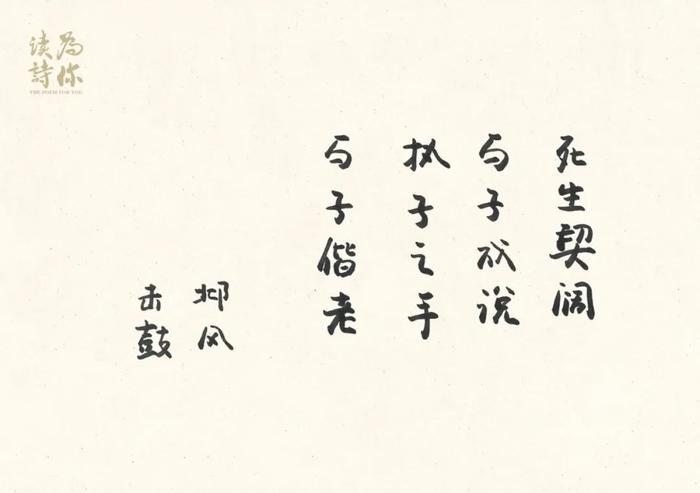 为你
读詩
THE POEM FOR YOU
死生契阔
与子成说
执子之手
与子偕老
邶风
击鼓